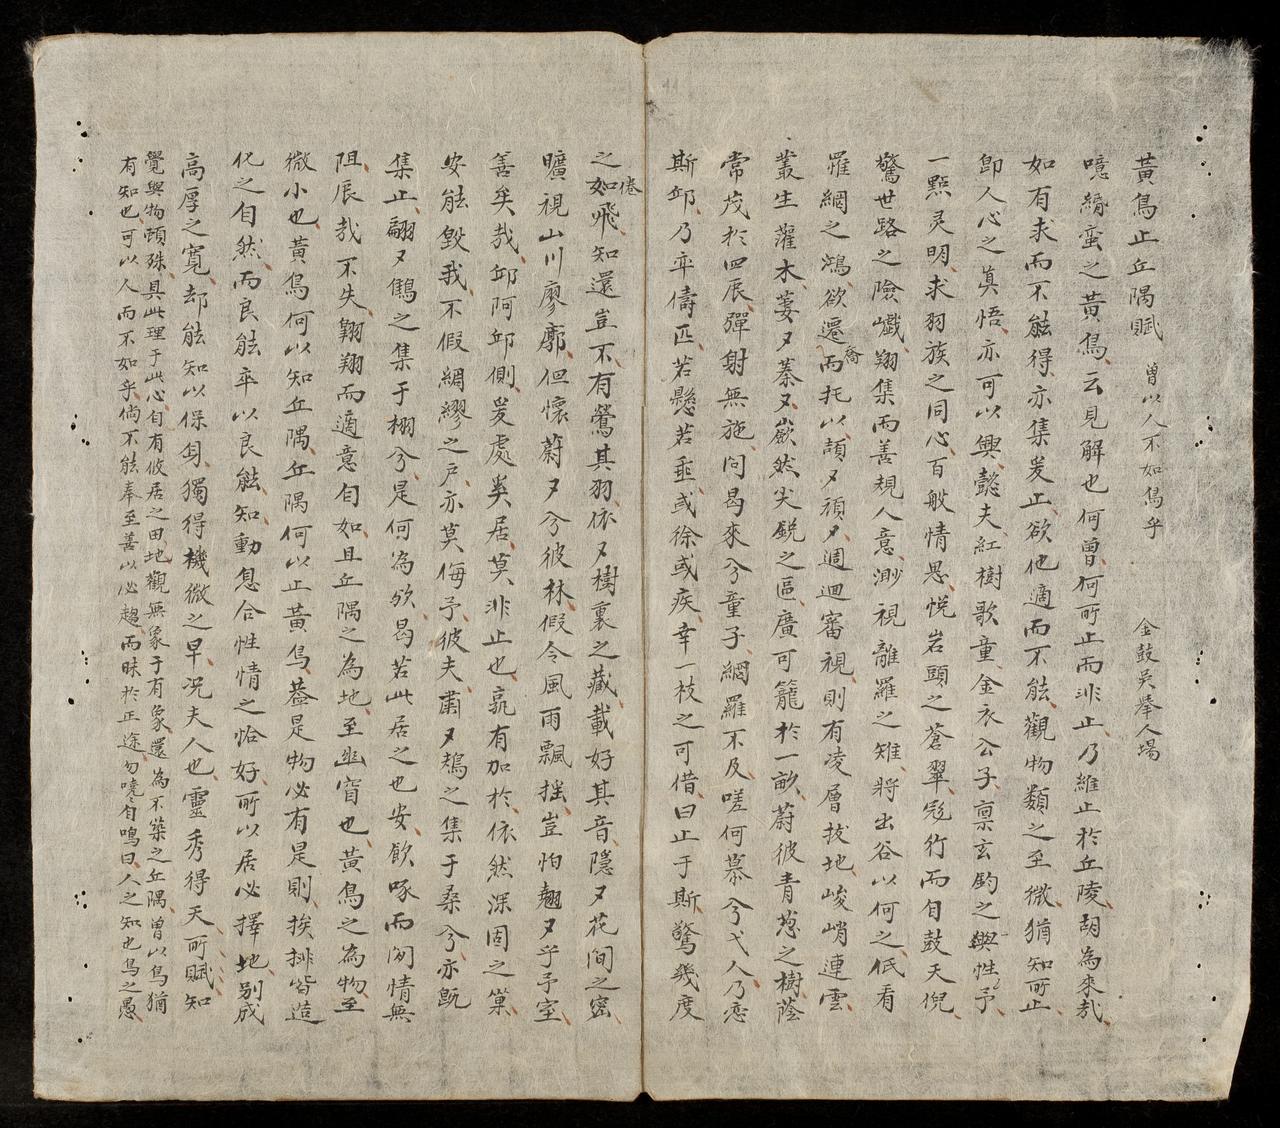 黃鳥止丘隅賦 曾以人不如鳥乎 金鼓吳舉人場
噫緡蛮之黃鳥云見解也何曾何所止而非止乃維止於丘陵胡為來哉
如有求而不能得亦集爰止欲也適而不能觀物類之至微猶知所止
卽人心之真悟亦可以興懿夫紅樹歌童金衣公子禀玄鈞之與性予
一點灵明求羽族之同心百般情思悅岩頭之蒼翠彪行而自鼓天倪
驚世路之險巇翔集而善規人意渺視離羅之雉將出谷以何之低看
罹網之鴻欲遷喬而托以頡々頏々週迴審視則有凌層拔地峻峭連雲
叢生灌木萋々蓁々巌然尖銳之區廣可籠於一畝蔚彼青葱之樹蔭
常茂於四辰彈射無施问曷來兮童子網羅不及嗟何慕兮弋人乃恋
斯邱乃弃儔匹若懸若垂或徐或疾幸一枝之可借曰止于斯驚幾度
之倦如飛知還豈不有鶯其羽依々樹裏之藏載好其音隱々花间之密
曠視山川廖廓但懷蔚々兮彼林假令風雨飄揺豈怕翹々乎予室
善矣哉邱阿邱側爰處奚居莫非止也孰有加於依然深固之巢
安能毀我不假綢繆之户亦莫侮予彼夫肅々鴇之集于桑兮亦既
集止翩々鶵之集于栩兮是何為欤曷若此居之也安飲啄而闲情無
阻辰哉不失翱翔而適意自如且丘隅之為地至幽窅也黃鳥之為物至
微小也黃鳥何以知丘隅丘隅何以止黃鳥蓋是物必有是則挨排皆造
化之自然而良能卒以良能知動息合性情之恰好所以居必擇地别成
高厚之寛却能知以保身獨得機微之早况夫人也靈秀得天所賦知
覺與物頭殊具此理于此心自有攸居之田地觀無象于有象還為不築之丘隅曾以鳥猶
有知也可以人而不如乎倘不能奉至善以必趨而昧於正途勿嘵々自鳴曰人之知也鳥之愚